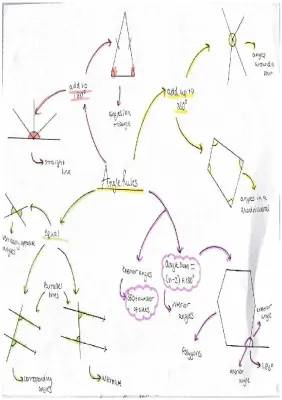 add to
180°
angles in a
triangle
straight
line
add up to
360°
angles
around a
angles in a
quadrilateral
Angle Rules
equal
vertically opposite
angles
Parallel
lines
corresponding
angles
exterior angles
= 360÷number
of sides
angle sum =
(n-2)×180°
interior
angles
Polygons
exterior
angle
interior
angle
180°